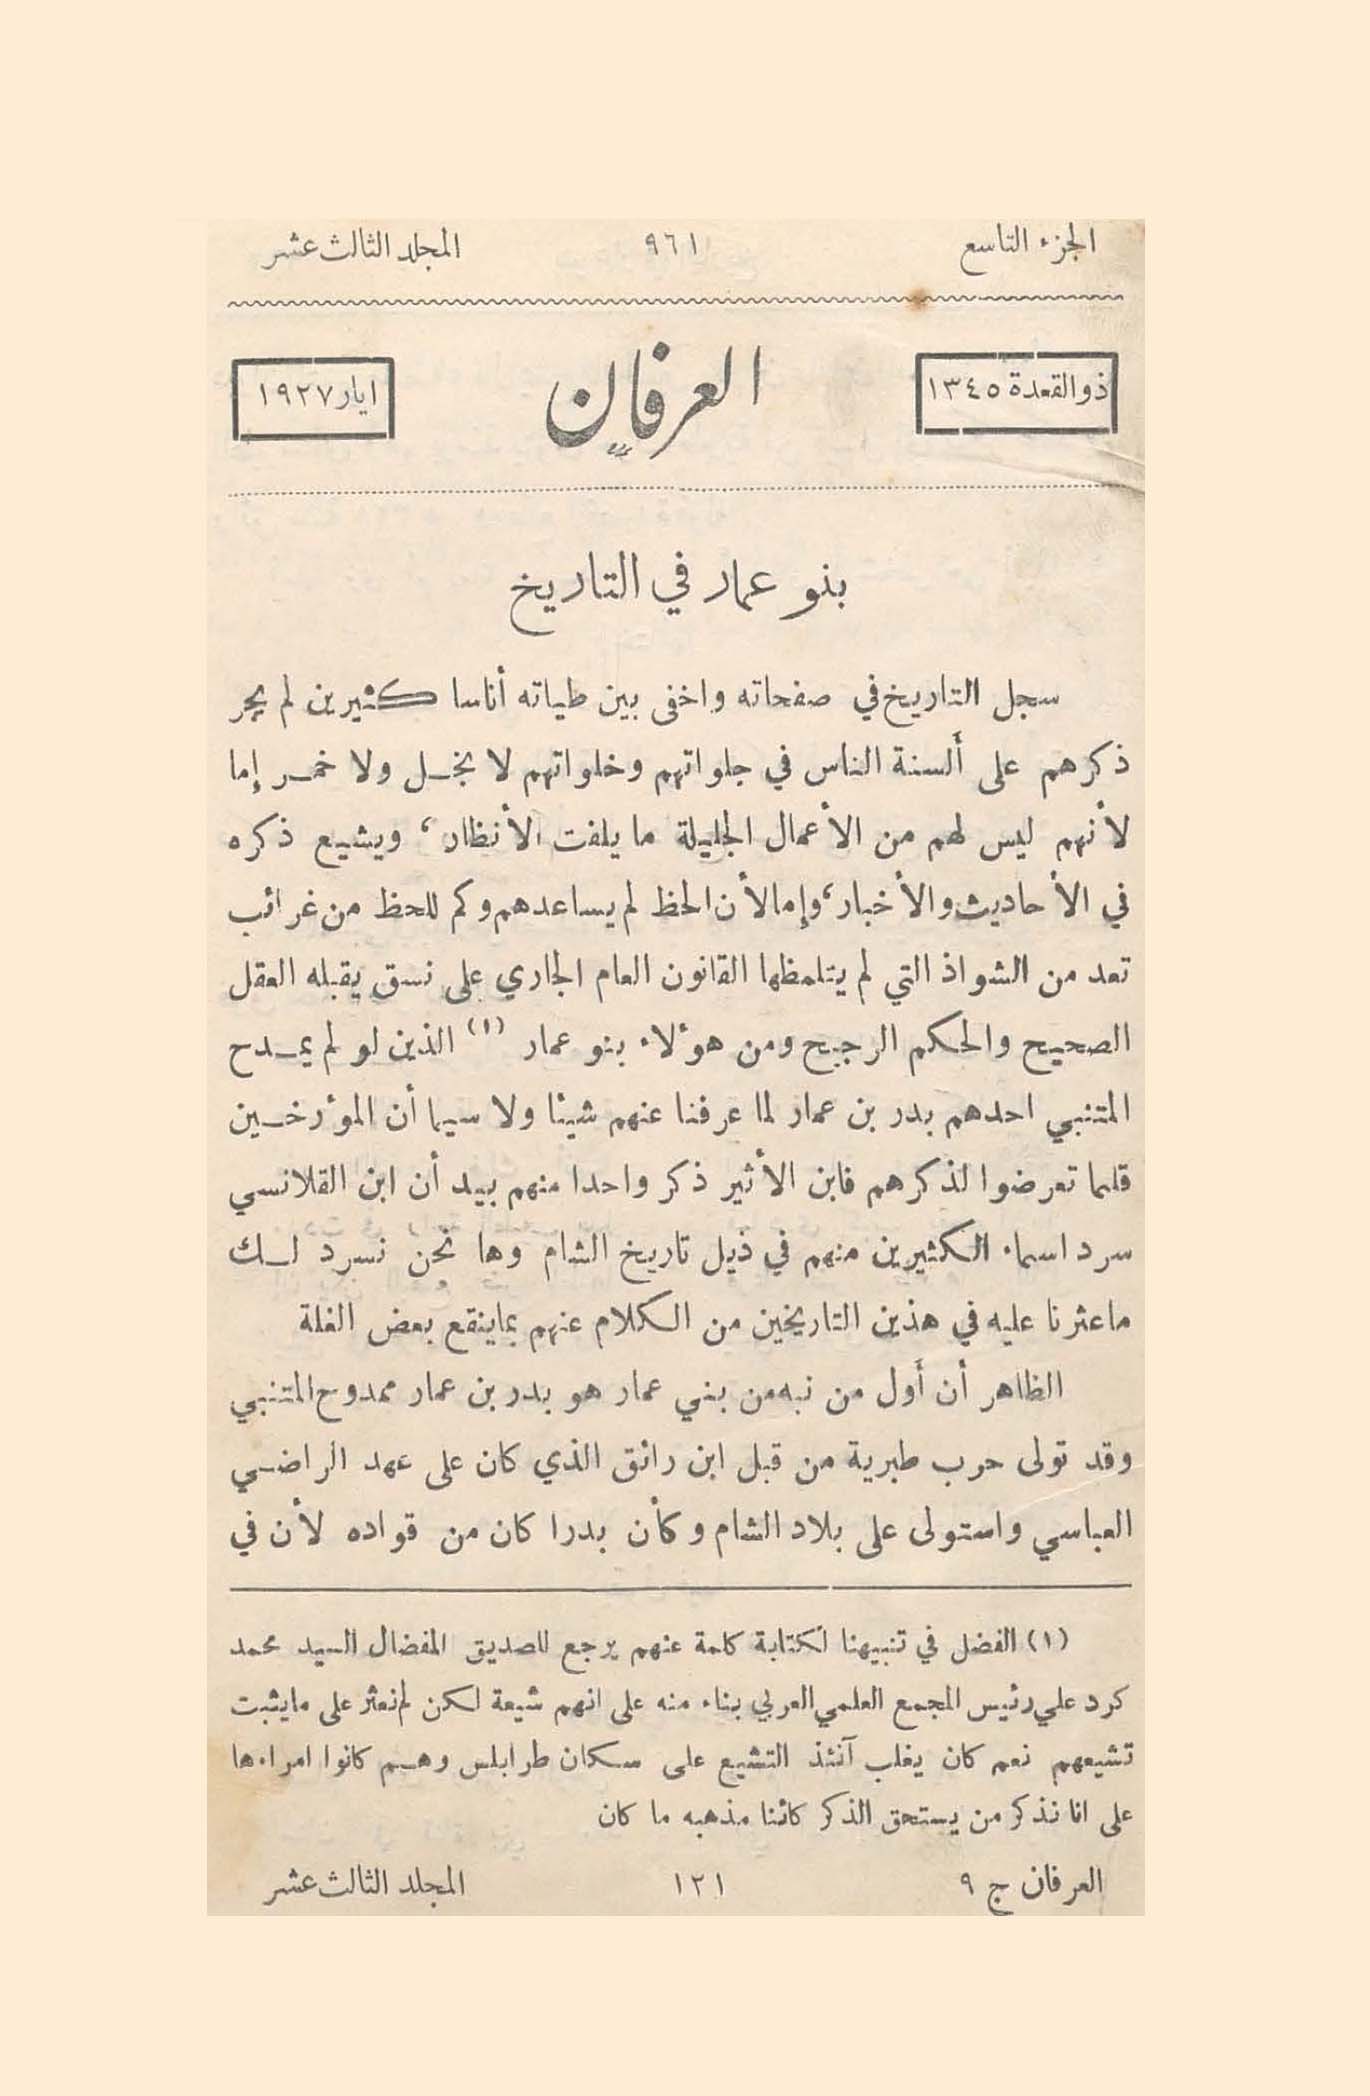 الجزء التاسع ٩٦١ المجلد الثالث عشر
ذو القعدة ١٣٤٥ العرفان ايار ١٩٢٧
بنو عمار في التاريخ
سجل التاريخ في صفحاته واخفى بين طياته أناسا كثيرين لم يجر
ذكرهم على ألسنة الناس في جلواتهم وخلواتهم لا بخل ولا خمر إما
لأنهم ليس لهم من الأعمال الجليلة ما يلفت الأنظار، ويشيع ذكره
في الأحاديث والأخبار، وإما لأن الحظ لم يساعدهم وكم للحظ من غرائب
تعد من الشواذ التي لم يتلمظها القانون العام الجاري على نسق يقبله العقل
الصحيح والحكم الرجيح ومن هؤلاء بنو عمار (١) الذين لو لم يمدح
المتنبي احدهم بدر بن عمار لما عرفنا عنهم شيئا ولا سيما أن المؤرخين
قلما تعرضوا لذكرهم فابن الأثير ذكر واحدا منهم بيد أن ابن القلانسي
سرد اسماء الكثيرين منهم في ذيل تاريخ الشام وها نحن نسرد لك
ما عثرنا عليه في هذين التاريخين من الكلام عنهم بما ينقع بعض الغلة
الظاهر أن أول من نبه من بني عمار هو بدر بن عمار ممدوح المتنبي
وقد تولى حرب طبرية من قبل ابن رائق الذي كان على عهد الراضي
العباسي واستولى على بلاد الشام وكأن بدرا كان من قواده لأن في
(١) الفضل في تنبيهنا لكتابة كلمة عنهم يرجع للصديق المفضال السيد محمد
كرد علي رئيس المجمع العلمي العربي بناء منه على انهم شيعة لكن لم نعثر على ما يثبت
تشيعهم نعم كان يغلب آنئذ التشيع على سكان طرابلس وهم كانوا امراءها
على انا نذكر من يستحق الذكر كائنا مذهبه ما كان
العرفان ج ٩ ١٢١ المجلد الثالث عشر